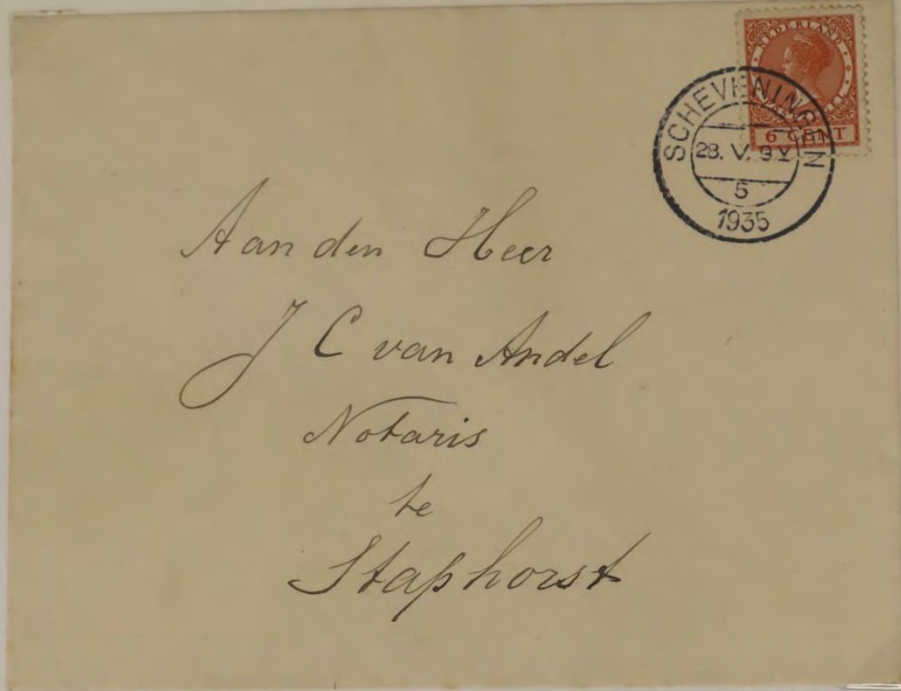 NEDERLAND
6 CENT
SCHEVENINGEN
28. V. 9 V
5
1935
Aan den Heer
J C van Andel
Notaris
te
Staphorst